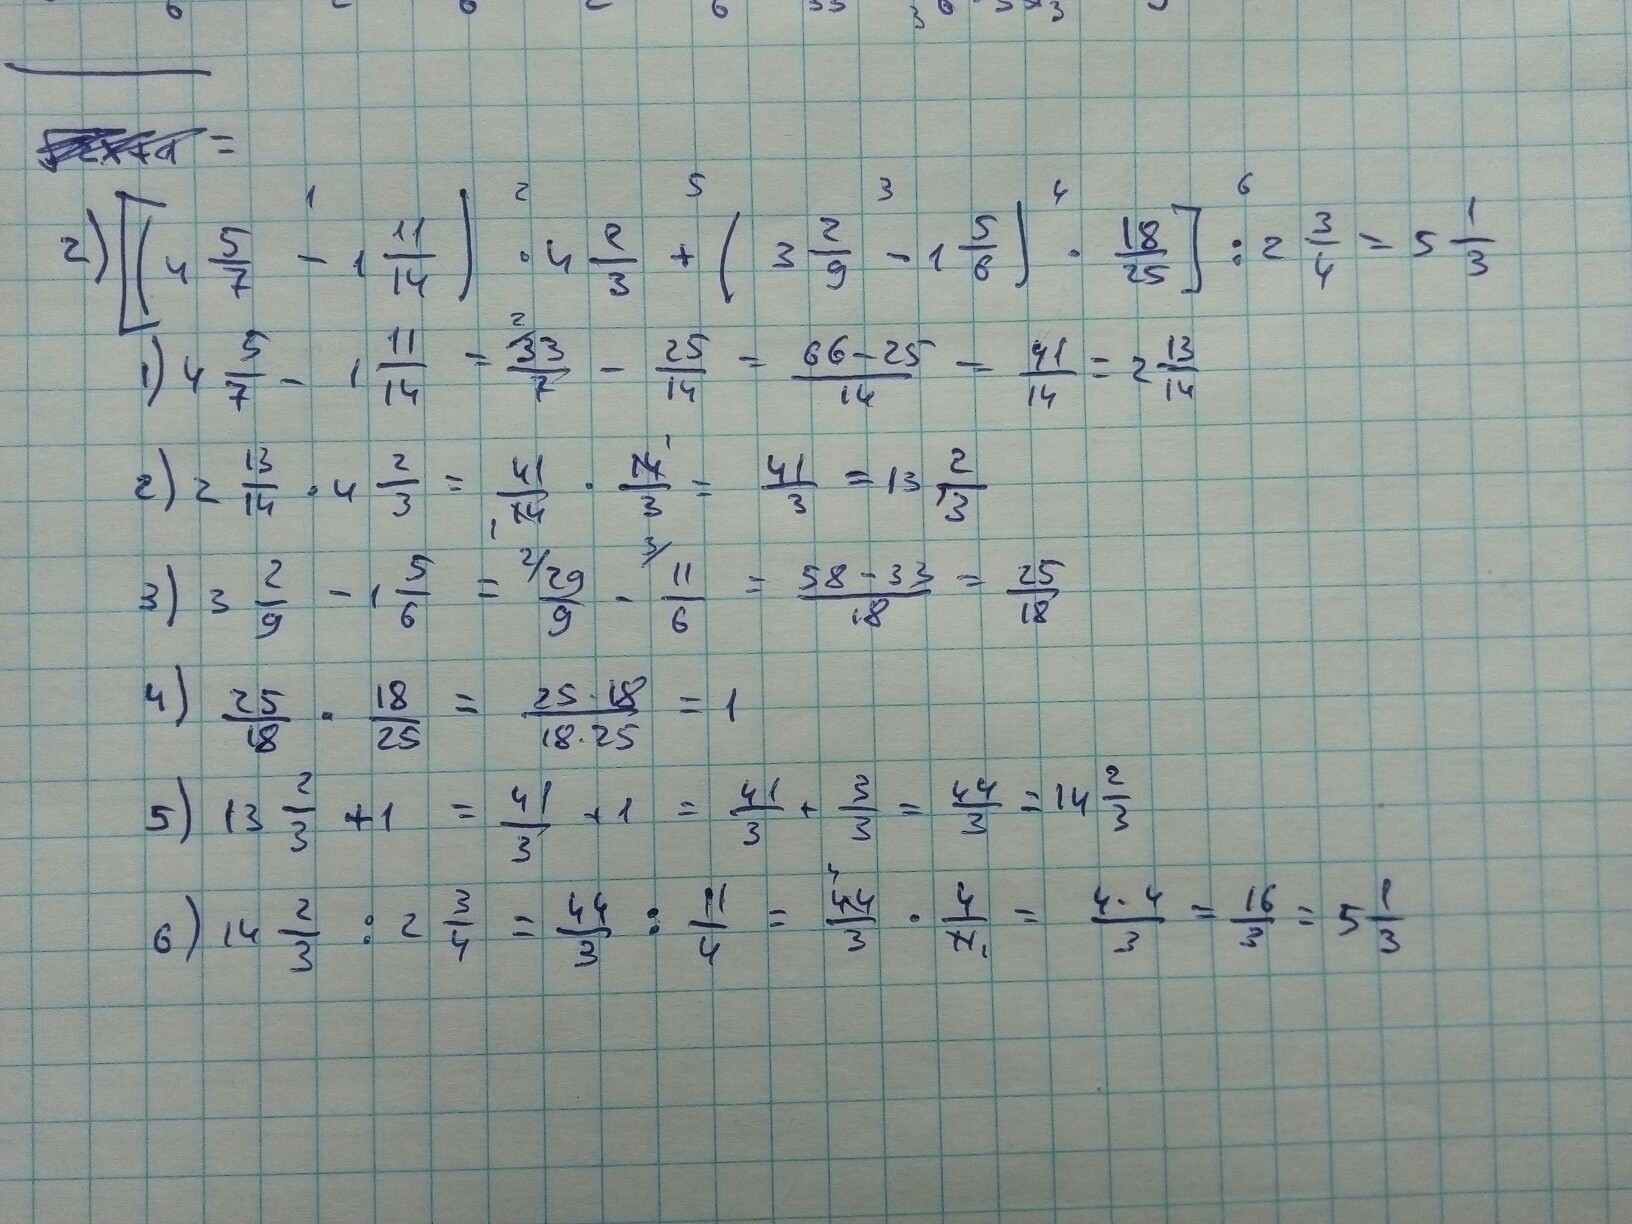 =
2) [(4 5/7 - 1 11/14) · 4 2/3 + (3 2/9 - 1 5/6) · 18/25] : 2 3/4 = 5 1/3
1) 4 5/7 - 1 11/14 = 33/7 - 25/14 = 66-25/14 = 41/14 = 2 13/14
2) 2 13/14 · 4 2/3 = 41/14 · 14/3 = 41/3 = 13 2/3
3) 3 2/9 - 1 5/6 = 29/9 - 11/6 = 58-33/18 = 25/18
4) 25/18 · 18/25 = 25·18/18·25 = 1
5) 13 2/3 + 1 = 41/3 + 1 = 41/3 + 3/3 = 44/3 = 14 2/3
6) 14 2/3 : 2 3/4 = 44/3 : 11/4 = 44/3 · 4/11 = 4·4/3 = 16/3 = 5 1/3